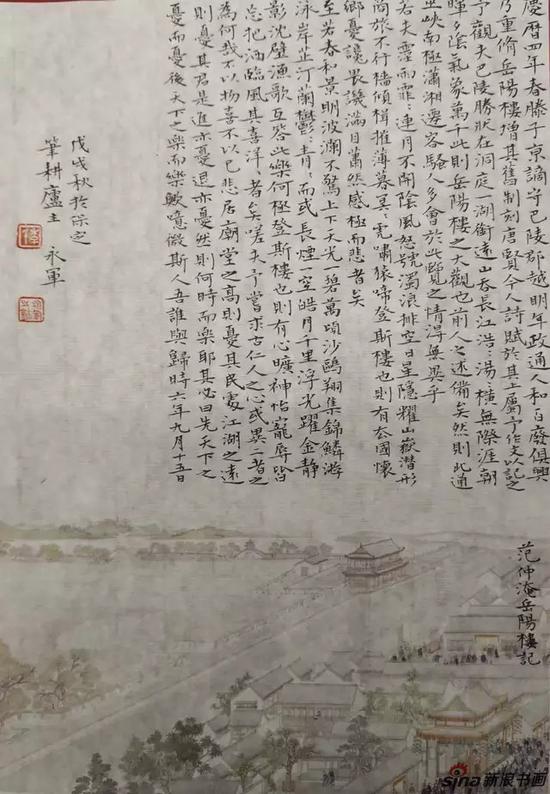 范仲淹岳陽樓記
慶曆四年春滕子京謫守巴陵郡越明年政通人和百廢俱興
乃重脩岳陽樓增其舊制刻唐賢今人詩賦於其上屬予作文以記之
予觀夫巴陵勝狀在洞庭一湖銜遠山吞長江浩:湯:橫無際涯朝
暉夕陰氣象萬千此則岳陽樓之大觀也前人之述備矣然則北通
巫峽南極瀟湘遷客騷人多會於此覽之情得無異乎
若夫霪雨霏:連月不開陰風怒號濁浪排空日星隱耀山嶽潛形
商旅不行檣傾楫摧薄暮冥:虎嘯猿啼登斯樓也則有去國懷
鄉憂讒畏譏滿目蕭然感極而悲者矣
至若春和景明波瀾不驚上下天光一碧萬頃沙鷗翔集錦鱗游
泳岸芷汀蘭鬱:青:而或長煙一空皓月千里浮光躍金靜
影沈壁漁歌互答此樂何極登斯樓也則有心曠神怡寵辱皆
忘把酒臨風其喜洋:者矣嗟夫予嘗求古仁人之心或異二者之
為何哉不以物喜不以己悲居廟堂之高則憂其民處江湖之遠
則憂其君是進亦憂退亦憂然則何時而樂耶其必曰先天下之
憂而憂後天下之樂而樂歟噫微斯人吾誰與歸時六年九月十五日
戊戌秋於保定
筆耕廬主 永軍
sina新浪书画